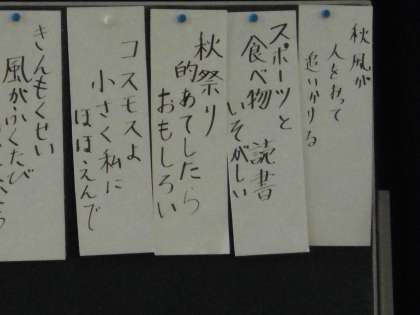 秋風が
人を
追いかける
スポーツと
食べ物 読書
いそがしい
秋祭り
的あてしたら
おもしろい
コスモスよ
小さく私に
ほほえんで
きんもくせい
風がふくたび